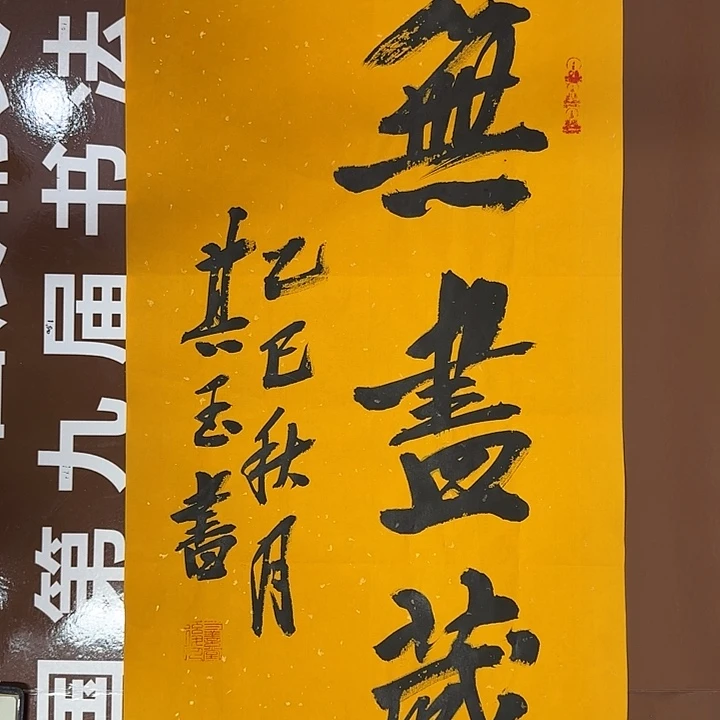 無盡藏
乙巳秋月
其玉書
国第九届书法